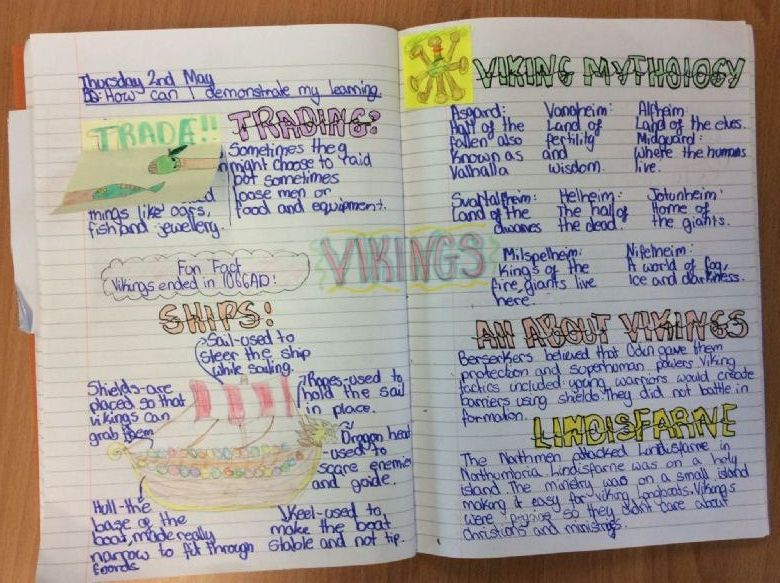 Thursday 2nd May
BQ: How can I demonstrate my learning.
TRADE!!
things like oars,
fish and jewellery.
TRADING:
Sometimes they
might choose to raid
but sometimes
loose men or
food and equipment.
Fun Fact
Vikings ended in 1066AD!
VIKINGS
SHIPS:
Sail-used to
steer the ship
while sailing.
Shields-are
placed so that
vikings can
grab them
Ropes-used to
hold the sail
in place.
Dragon head
-used to
scare enemies
and guide.
Hull-the
base of the
boat, made really
narrow to fit through
fjords
Keel-used to
make the boat
stable and not tip.
VIKING MYTHOLOGY
Asgard:
Hall of the
fallen also
known as
Valhalla
Vanaheim:
Land of
fertility
and
wisdom.
Alfheim
Land of the elves.
Midguard:
where the humans
live.
Svartalfheim:
Land of the
dwarves
Helheim:
The hall of
the dead.
Jotunheim:
Home of
the giants.
Milspelheim:
Kings of the
fire giants live
here.
Nifelheim:
A world of fog,
ice and darkness.
All ABOUT VIKINGS
Berserkers believed that Odin gave them
protection and superhuman powers. Viking
tactics included: young warriors would create
barriers using shields. They did not battle in
formation.
LINDISFARNE
The Northmen attacked Lindisfarne in
Northumbria. Lindisfarne was on a holy
island. The was on a small island
making it easy for viking longboats. Vikings
were so they didn't care about
Christians and